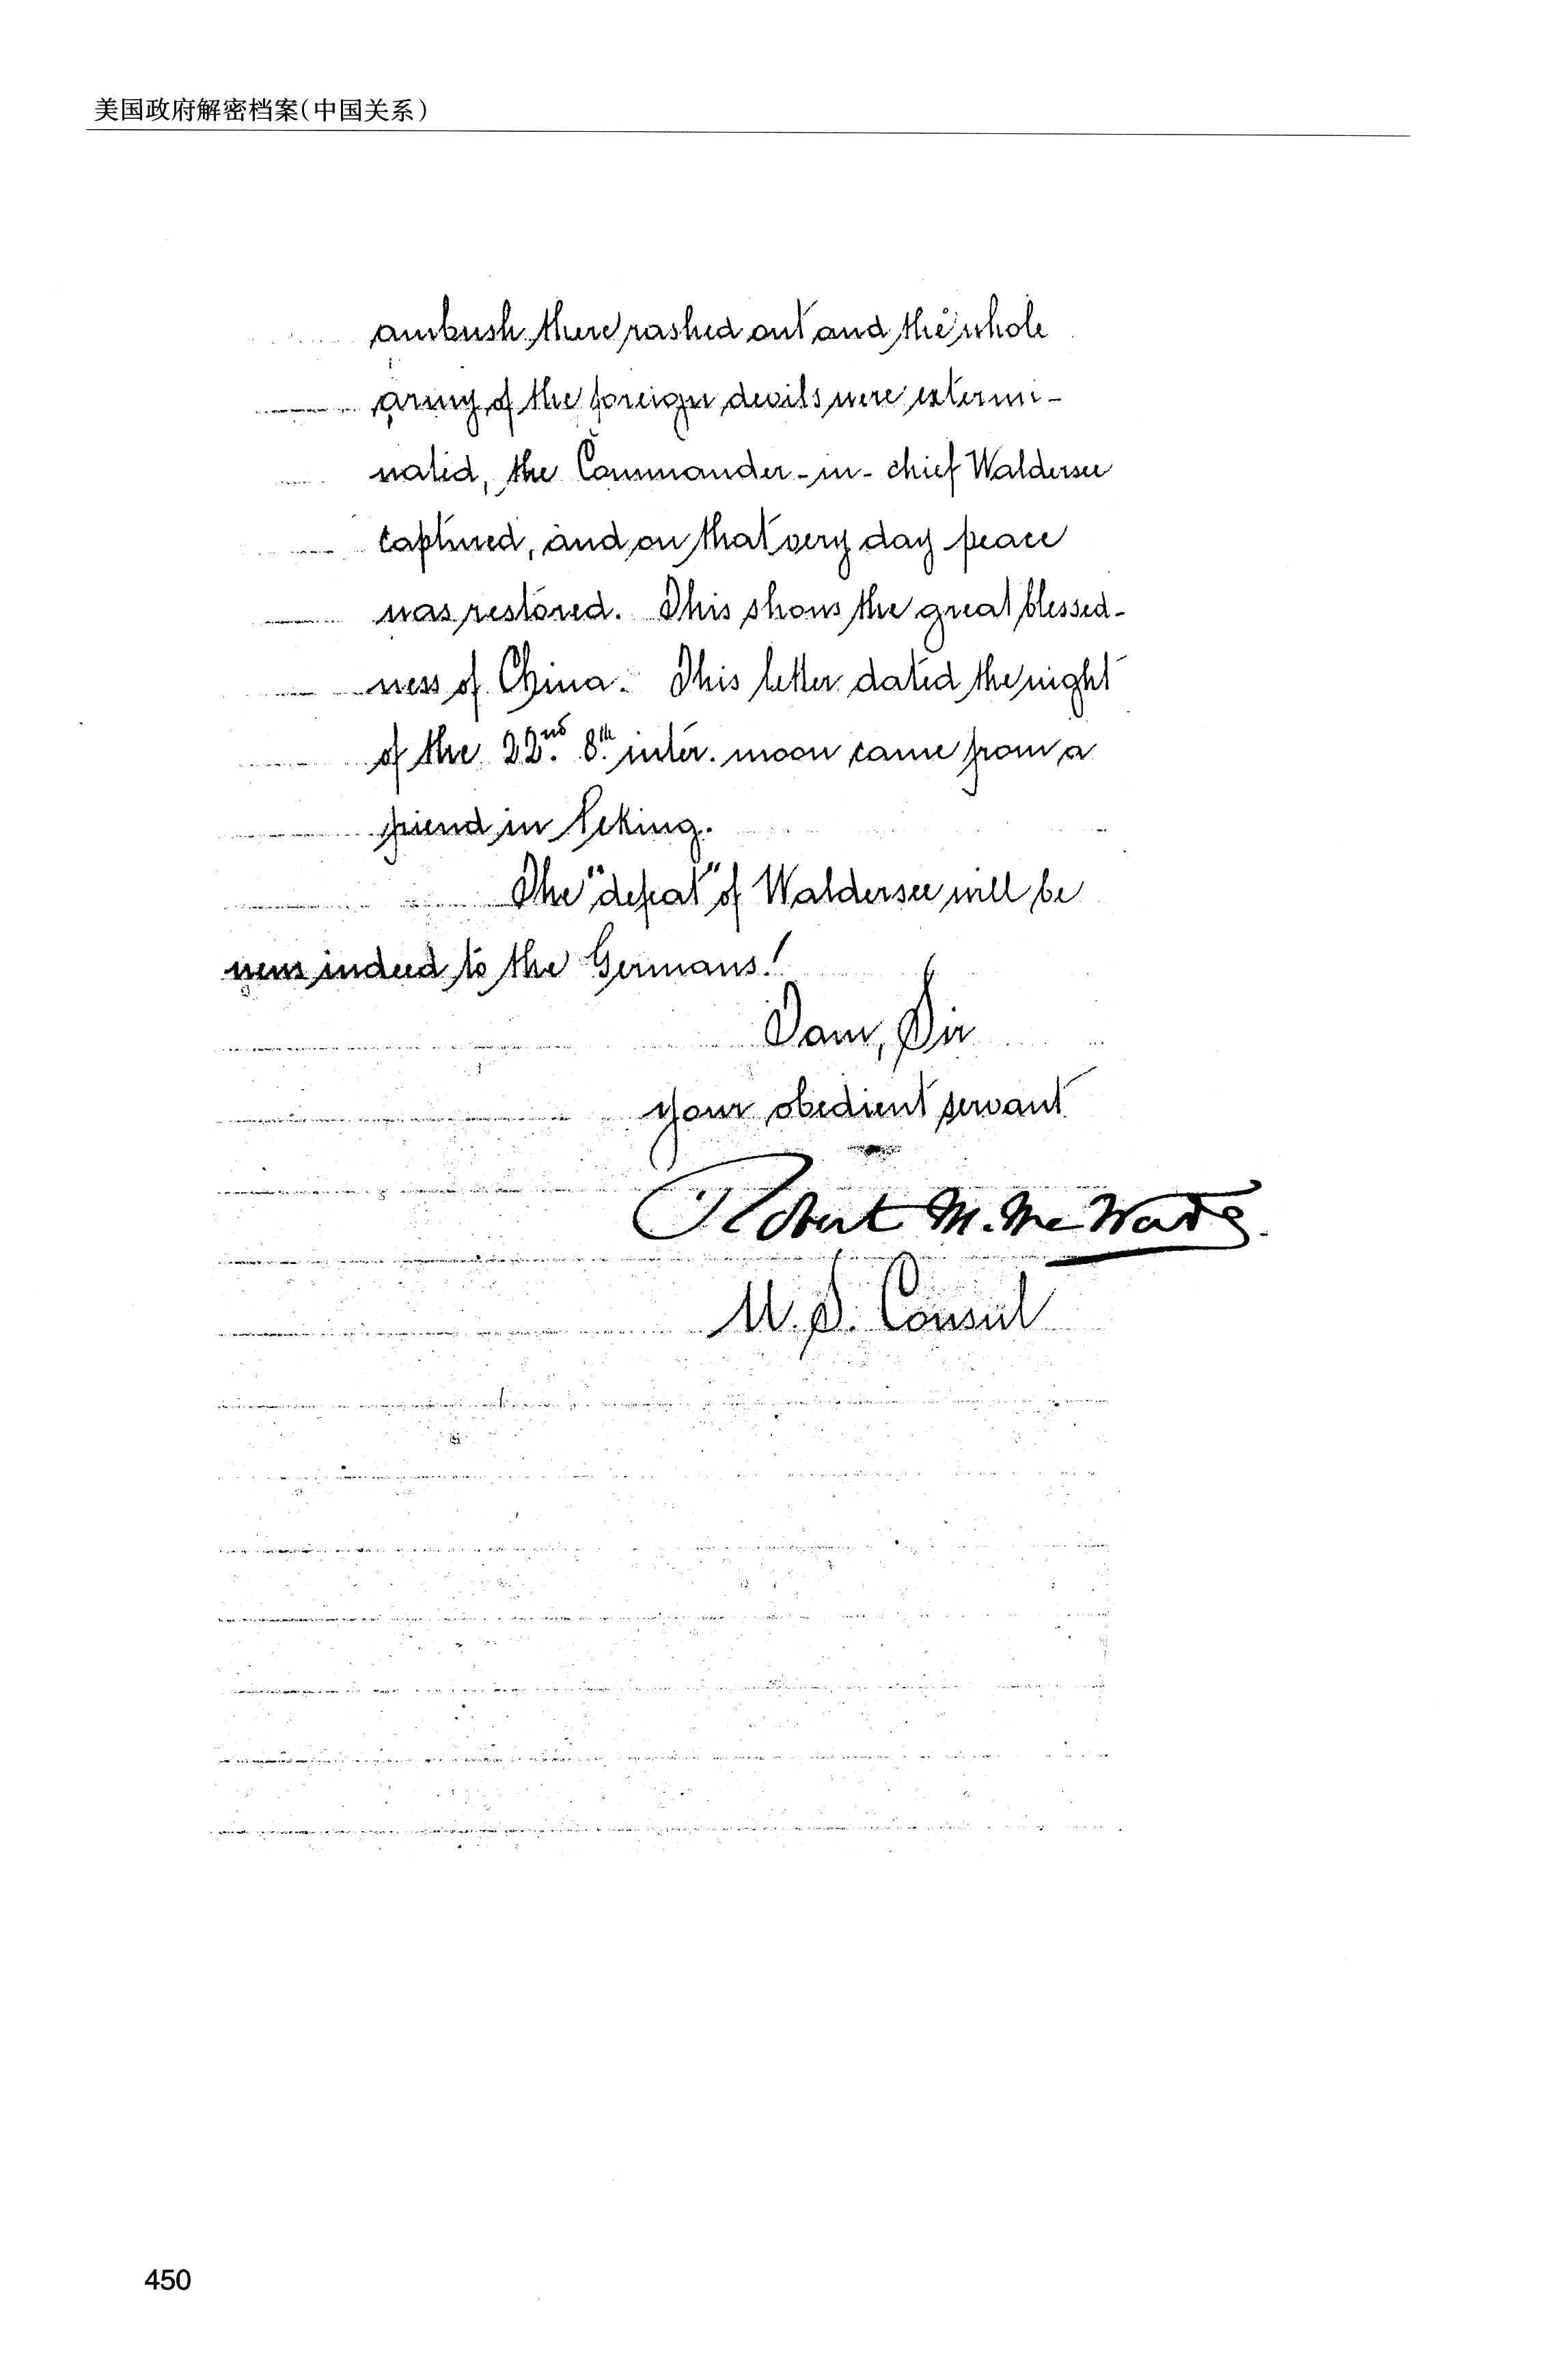 美国政府解密档案(中国关系)
ambush there rashed out and the whole
army of the foreign devils were extermi-
nated, the Commander-in-chief Waldersee
captured, and on that very day peace
was restored. This shows the great blessed-
ness of China. This letter dated the night
of the 22nd. 8th. inter. moon came from a
friend in Peking.
The "defeat" of Waldersee will be
news indeed to the Germans!
I am, Sir
your obedient servant
Robert M. McWade.
U. S. Consul
450